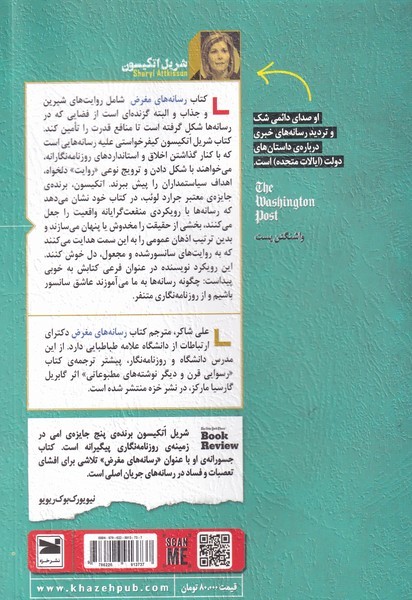 شریل اتکیسون
Sharyl Attkisson
او صدای دائمی شک
و تردید رسانه‌های خبری
درباره‌ی داستان‌های
دولت (ایالات متحده) است.
The
Washington
Post
واشنگتن پست
کتاب رسانه‌های مغرض شامل روایت‌های شیرین
و جذاب و البته گزنده‌ای است از فضایی که در
رسانه‌ها شکل گرفته است تا منافع قدرت را تأمین کند.
کتاب شریل اتکیسون کیفرخواستی علیه رسانه‌هایی است
که با کنار گذاشتن اخلاق و استانداردهای روزنامه‌نگارانه،
می‌خواهند با شکل دادن و ترویج نوعی «روایت» دلخواه،
اهداف سیاستمداران را پیش ببرند. اتکیسون، برنده‌ی
جایزه‌ی معتبر جرارد لوئب، در کتاب خود نشان می‌دهد
که رسانه‌ها با رویکردی منفعت‌گرایانه واقعیت را جعل
می‌کنند، بخشی از حقیقت را مخدوش یا پنهان می‌سازند و
بدین ترتیب اذهان عمومی را به این سمت هدایت می‌کنند
که به روایت‌های سانسورشده و مجعول، دل خوش کنند.
این رویکرد نویسنده در عنوان فرعی کتابش به خوبی
پیداست: چگونه رسانه‌ها به ما می‌آموزند عاشق سانسور
باشیم و از روزنامه‌نگاری متنفر.
علی شاکر، مترجم کتاب رسانه‌های مغرض دکترای
ارتباطات از دانشگاه علامه طباطبایی دارد. از این
مدرس دانشگاه و روزنامه‌نگار، پیشتر ترجمه‌ی کتاب
«رسوایی قرن و دیگر نوشته‌های مطبوعاتی» اثر گابریل
گارسیا مارکز، در نشر خزه منتشر شده است.
The New York Times
Book
Review
شریل اتکیسون برنده‌ی پنج جایزه‌ی امی در
زمینه‌ی روزنامه‌نگاری پیگیرانه است. کتاب
جسورانه‌ی او با عنوان «رسانه‌های مغرض» تلاشی برای افشای
تعصبات و فساد در رسانه‌های جریان اصلی است.
نیویورک‌بوک‌ریویو
SCAN
ME
نشر خزه
www.khazehpub.com
قیمت ۸۰,۰۰۰ تومان